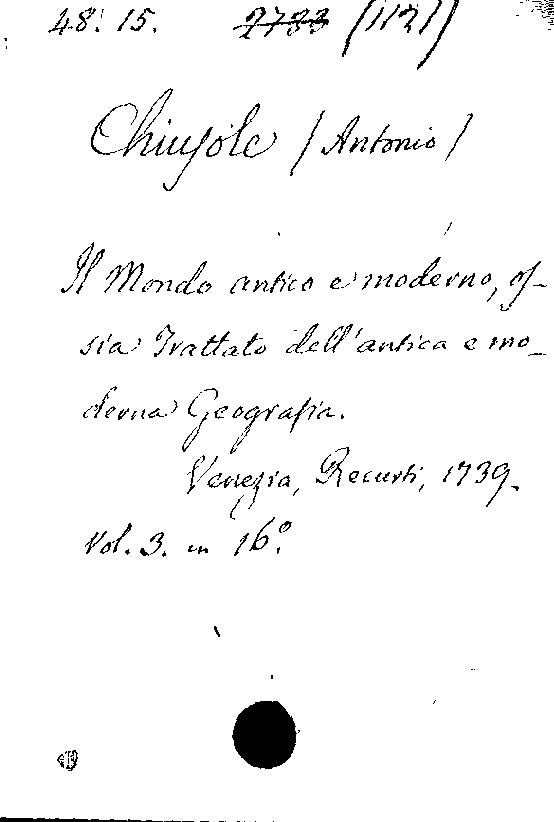 48. 15. 2733 (1121)
Chiusole / Antonio /
Il Mondo antico e moderno, os-
sia Trattato dell'antica e mo-
derna Geografia.
Venezia, Recurti, 1739.
Vol. 3. in 16º